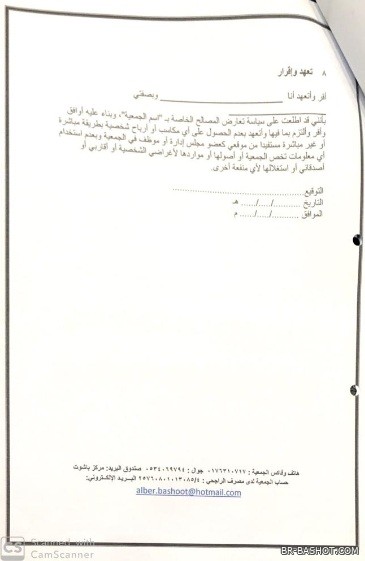 ٨ تعهد وإقرار
اقر وأتعهد أنا ____________________ وبصفتي
____________________
بأنني قد اطلعت على سياسة تعارض المصالح الخاصة بـ "اسم الجمعية"، وبناء عليه أوافق
وأقر وألتزم بما فيها وأتعهد بعدم الحصول على أي مكاسب أو أرباح شخصية بطريقة مباشرة
أو غير مباشرة مستفيدا من موقعي كعضو مجلس إدارة أو موظف في الجمعية وبعدم استخدام
أي معلومات تخص الجمعية أو أصولها أو مواردها لأغراضي الشخصية أو أقاربي أو
أصدقائي أو استغلالها لأي منفعة أخرى.
التوقيع........................................
التاريخ ........../...../..... هـ
الموافق ........../...../..... م
هاتف وفاكس الجمعية : ٠١٧٦٣١٠٧٢٧ جوال : ٠٥٣٤٠٦٩٧٩٤ صندوق البريد: مركز باشوت
حساب الجمعية لدى مصرف الراجحي : ٢٥٧٦٠٨٠٢٠١٣٠٨٥/٤ البريد الإلكتروني:
alber.bashoot@hotmail.com
CS Scanned with
CamScanner
BR-BASHOT.COM